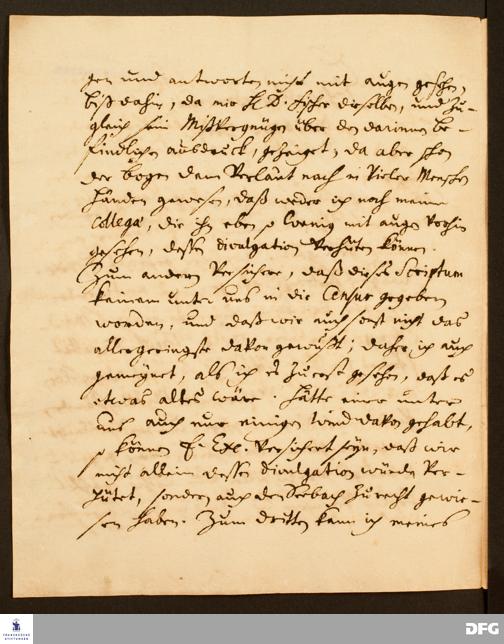 gen und antworten nicht mit augen gesehen,
biß dahin, da mir H. D. Fischer dieselben, und zu-
gleich sein Mißvergnügen über den darinnen be-
findlichen ausdruck, gezeiget, da aber schon
der bogen dem Verlaut nach in vieler Menschen
Händen gewesen, daß weder ich noch meine
Collegae, die ihn eben so wenig mit augen vorhin
gesehen, dessen divulgation verhüten können.
Zum andern versichere, daß dieses Scriptum
keinem unter uns in die Censur gegeben
worden, und daß wir auch sonst nicht das
allergeringste davon gewußt; daher ich auch
gemeynet, als ich es zuerst gesehen, daß es
etwas altes wäre. Hätte einer unter
uns auch nur einigen wind davon gehabt,
so können E. Exc. versichert seyn, daß wir
nicht allein dessen divulgation würden ver-
hütet, sondern auch den Seebach zu recht gewie-
sen haben. Zum dritten kann ich meines
FRANCKESCHE
STIFTUNGEN
DFG